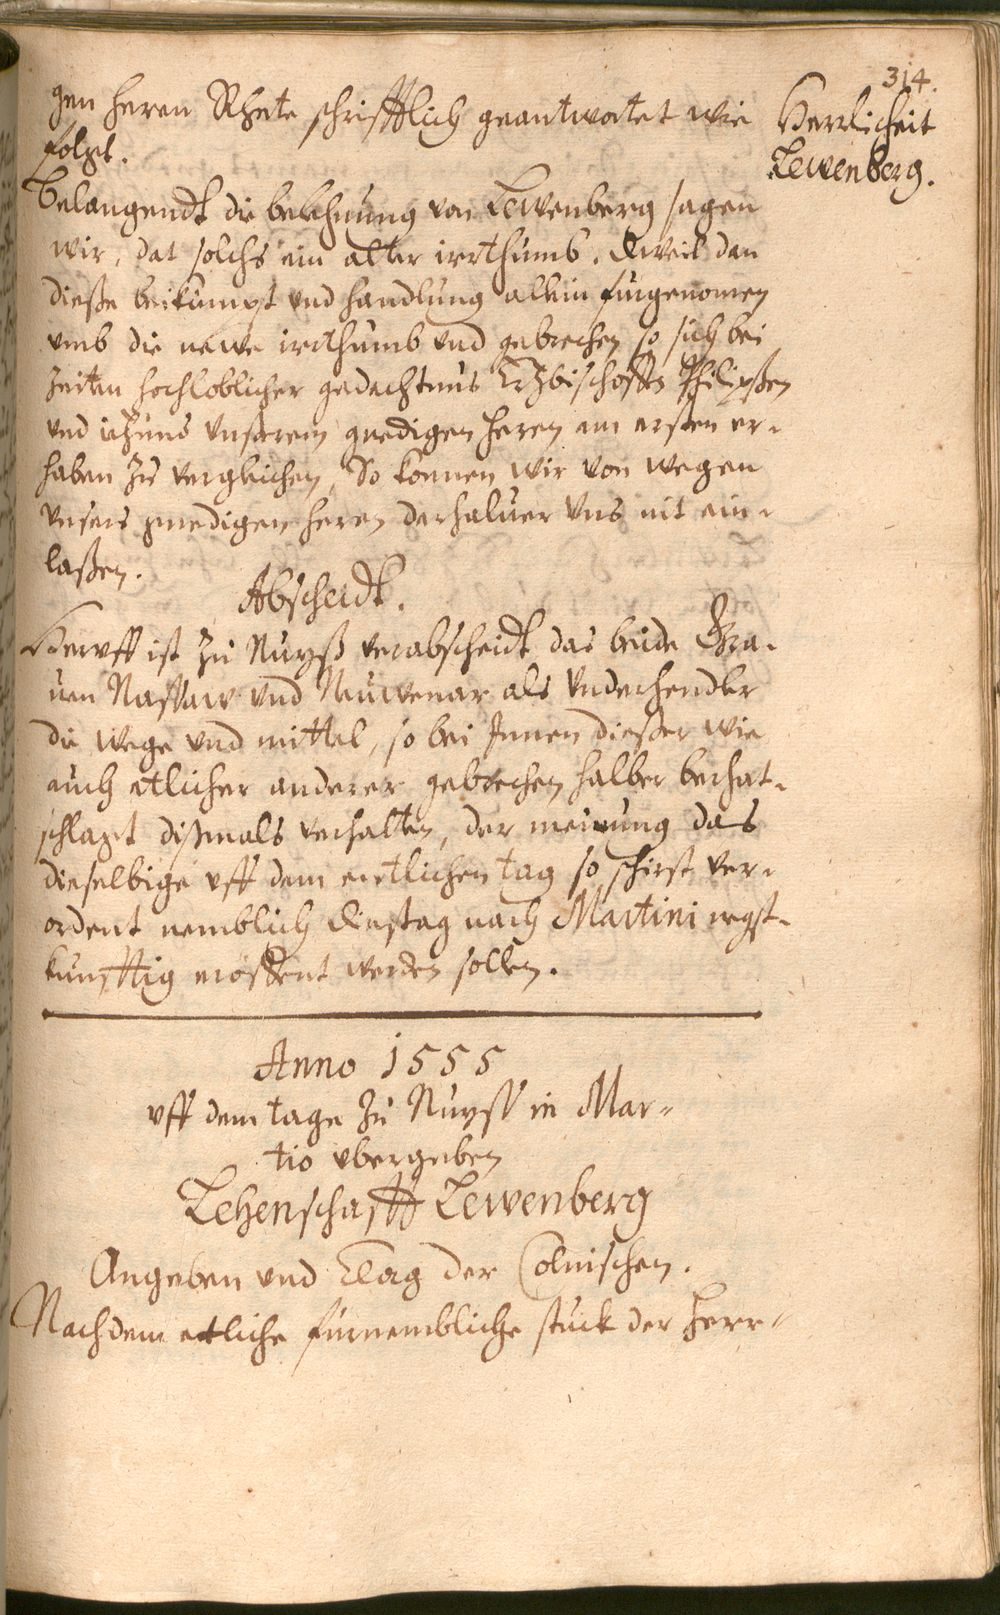 314.
Herrlicheit
Lewenberg.
gen heren Rhete schrifftlich geantwortet wie
folgt.
Belangendt die belehnung von Lewenberg sagen
wir, dat solchs ein alter irrthumb. Dweil dan
dieße beikumpst vnd handlung allein furgenomen
vmb die newe irrthumb vnd gebrechen so sich bei
Zeiten hochloblicher gedachtnus Ertzbischoffs Philipßen
vnd itzund vnßerem gnedigen heren am ersten er-
haben zu vergleichen, So konnen wir von wegen
vnsers gnedigen heren derhaluer vns nit ein-
laßen.
Abscheidt.
Hervff ist zu Nuyß verabscheidt das beide Gra-
uen Nassaw vnd Nuwenar als vnderhendler
die wege vnd mittel, so bei Innen dießer wie
auch etlicher anderer gebrechen halber berhat-
schlagt dißmals verhalten, der meinung das
dieselbige vff dem entlichen tag so schirst ver-
ordent nemblich Dinstag nach Martini negst-
kunfftig eroffent werden sollen.
Anno 1555
vff dem tage zu Nuyss in Mar-
tio vbergeben
Lehenschafft Lewenberg
Angeben vnd Clag der Colnischen.
Nachdem etliche furnembliche stuck der herr-